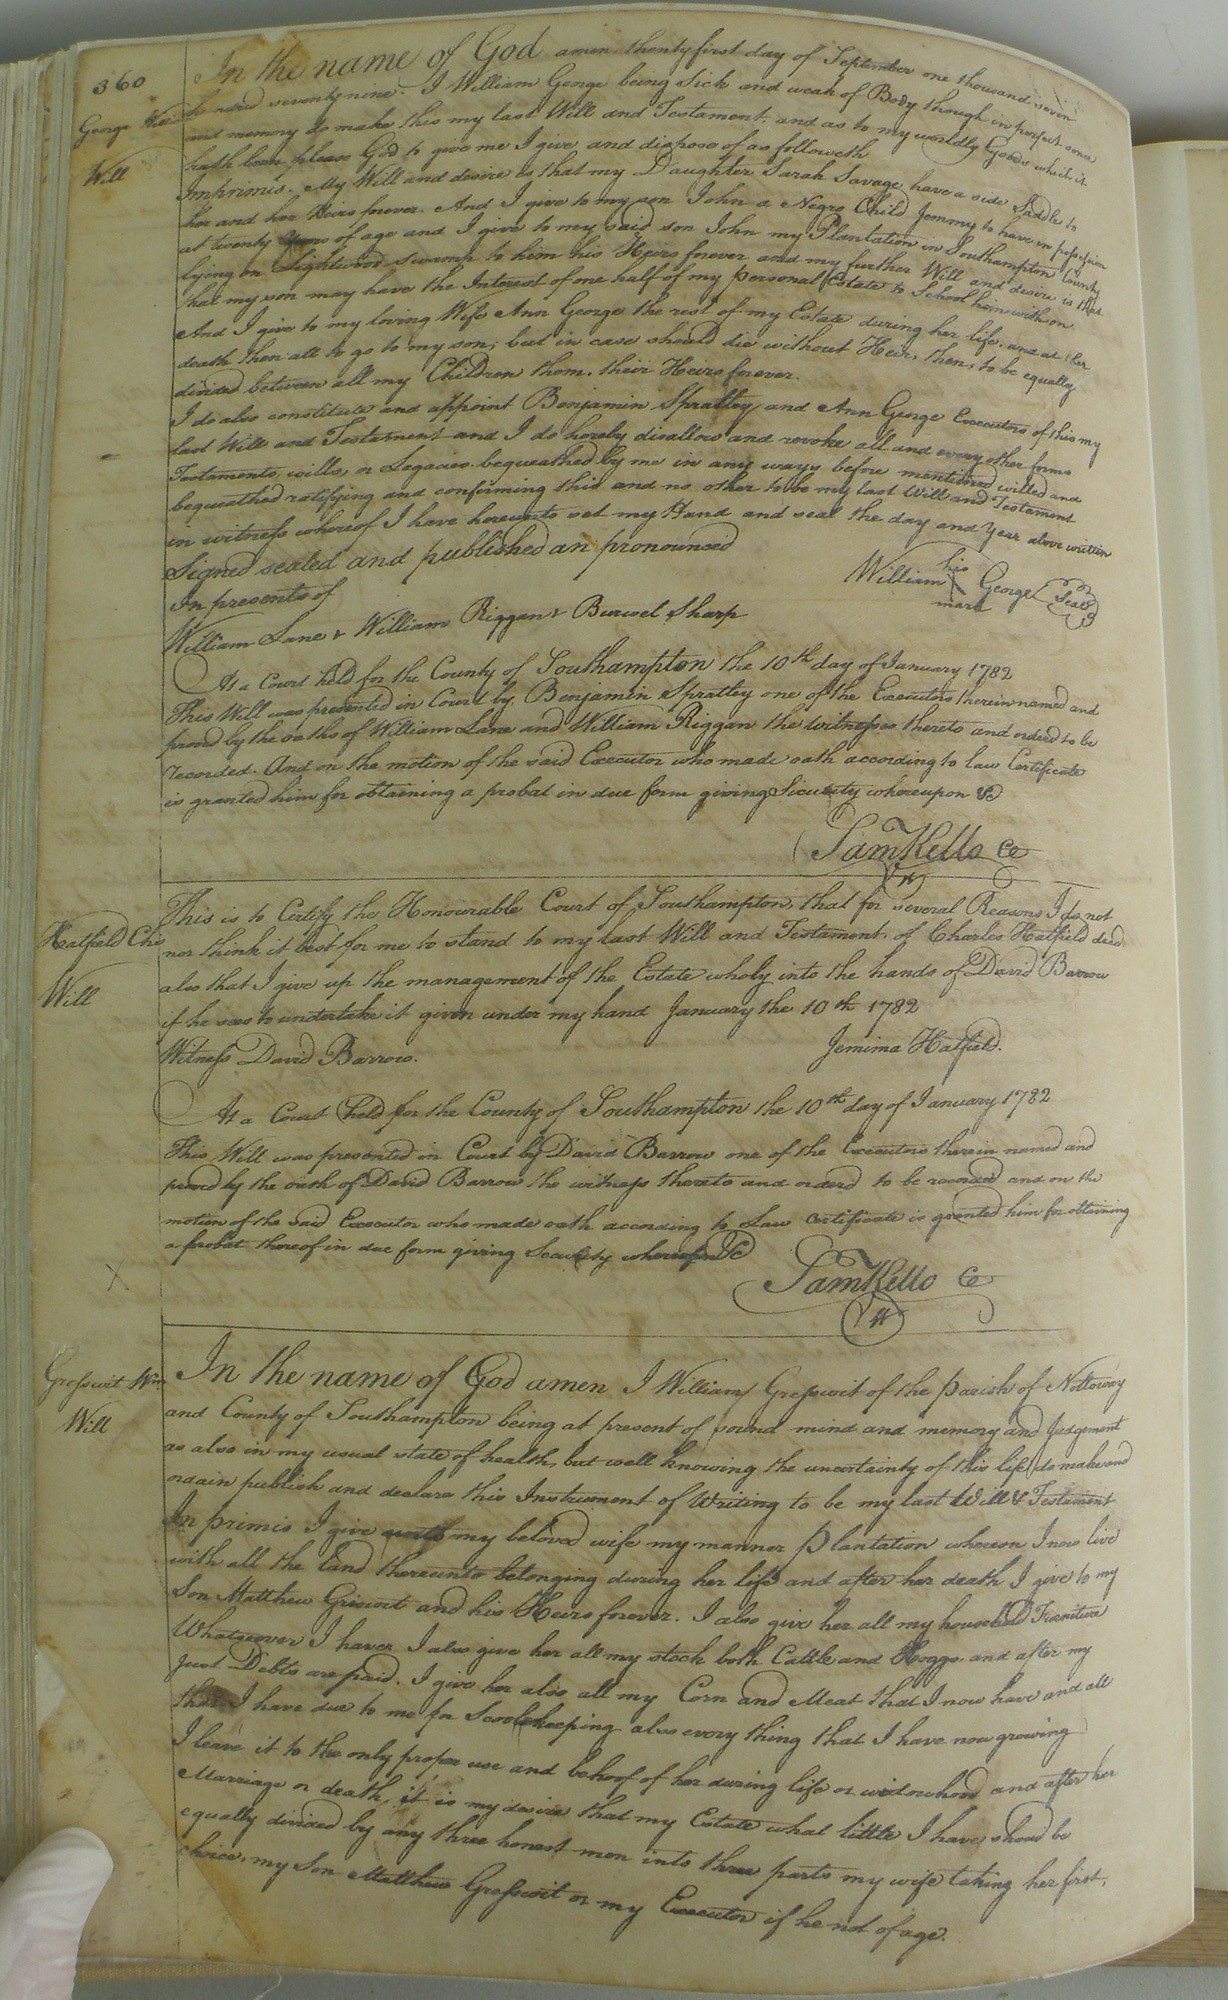 360
George Wm
Will
In the name of God amen, thenty first day of September one thousand seven
hundred seventy nine. I William George being Sick and weak of Body though in perfect sence
and memory do make this my last Will and Testament, and as to my worldly Goods which it
hath been please God to give me I give and dispose of as followeth
Imprimis. My Will and desire is that my Daughter Sarah Savage have a side Saddle to
her and her Heirs forever. And I give to my son John a Negro Child Jemmy to have in possession
at twenty years of age and I give to my said son John my Plantation in Southampton County
lying on Lightwood swamp to him his Heirs forever and my further Will and desire is that
that my son may have the Interest of one half of my personal Estate to School him with on
And I give to my loving Wife Ann George the rest of my Estate during her life, and at her
death then all to go to my son, but in case should die without Heir, then, to be equally
divided between all my Children them, their Heirs forever.
I do also constitute and appoint Benjamin Spratley and Ann George Executors of this my
last Will and Testament and I do hereby disallow and revoke all and every other forms
Testaments, wills, or Legacies bequeathed by me in any ways before mentioned willed and
bequeathed ratifying and confirming this and no other to be my last Will and Testament
in witness whereof I have hereunto set my Hand and seal the day and Year above written
Signed sealed and published an pronounced
In presents of
William his mark George Seal
William Lane & William Riggan & Burwel Sharp
At a Court held for the County of Southampton the 10th day of January 1782
This Will was presented in Court by Benjamin Spratley one of the Executors therein named and
proved by the oaths of William Lane and William Riggan the witnesses thereto and ordered to be
recorded. And on the motion of the said Executor who made oath according to law Certificate
is granted him for obtaining a probat in due form giving Sicurity whereupon &c
Sam Kello Cc
Hatfield Chs
Will
This is to Certify the Honourable Court of Southampton, that for several Reasons I do not
nor think it best for me to stand to my last Will and Testament of Charles Hatfield decd
also that I give up the management of the Estate wholy into the hands of David Barrow
if he sees to undertake it given under my hand January the 10th 1782
Witness David Barrow.
Jemima Hatfield.
At a Court held for the County of Southampton the 10th day of January 1782
This Will was presented in Court by David Barrow one of the Executors therein named and
proved by the oath of David Barrow the witness thereto and orderd to be recorded and on the
motion of the said Executor who made oath according to Law certificate is granted him for obtaining
a probat thereof in due form giving Security whereupon &c
Sam Kello Cc
X
Gresswit Wm
Will
In the name of God amen I William Gresswit of the parish of Nottoway
and County of Southampton being at present of sound mind and memory and Judgement
as also in my usual state of health, but well knowing the uncertainty of this life, do make and
ordain publish and declare this Instrument of Writing to be my last Will & Testament
In primis I give unto my beloved wife my manner plantation whereon I now live
with all the Land thereunto belonging during her life and after her death I give to my
Son Matthew Griswit and his Heirs forever. I also give her all my household Furniture
Whatsoever I have. I also give her all my stock both Cattle and Hoggs. and after my
Just Debts are paid. I give her also all my Corn and Meat that I now have and all
that I have due to me for Scoolkeeping also every thing that I have now growing
I leave it to the only proper use and behoof of her during life or widowhood and after her
Marriage or death, it is my desire that my Estate what little I have, shoud be
equally divided by any three honest men into three parts my wife taking her first,
choice, my Son Matthew Gresswit or my Executor if he not of age.